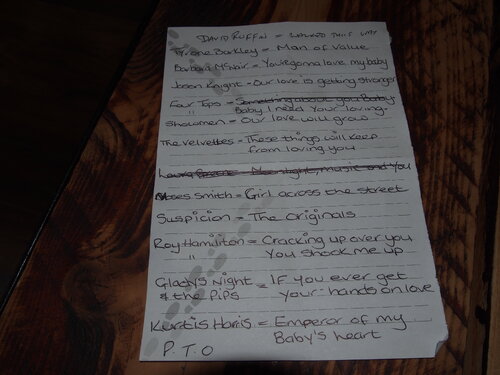 DAVID RUFFIN = WALKED THIS WAY
Tyrone Barkley = Man of Value
Barbara McNair = You're gonna love my baby
Jason Knight - Our love is getting stronger
Four Tops = Something about you Baby
" Baby I need Your loving -
Showmen = Our love will grow
THE VELVETTES = These things will keep
from loving you
Laura Greene Moonlight, music and You
Moses Smith = Girl across the street
Suspicion = The originals
Roy Hamiliton = Cracking up over you
" You Shock me up
Gladys Night = IF you ever get
& the PiPs Your hands on love
Kurtis Haris = Emperor of my
Baby's heart
P.T.O